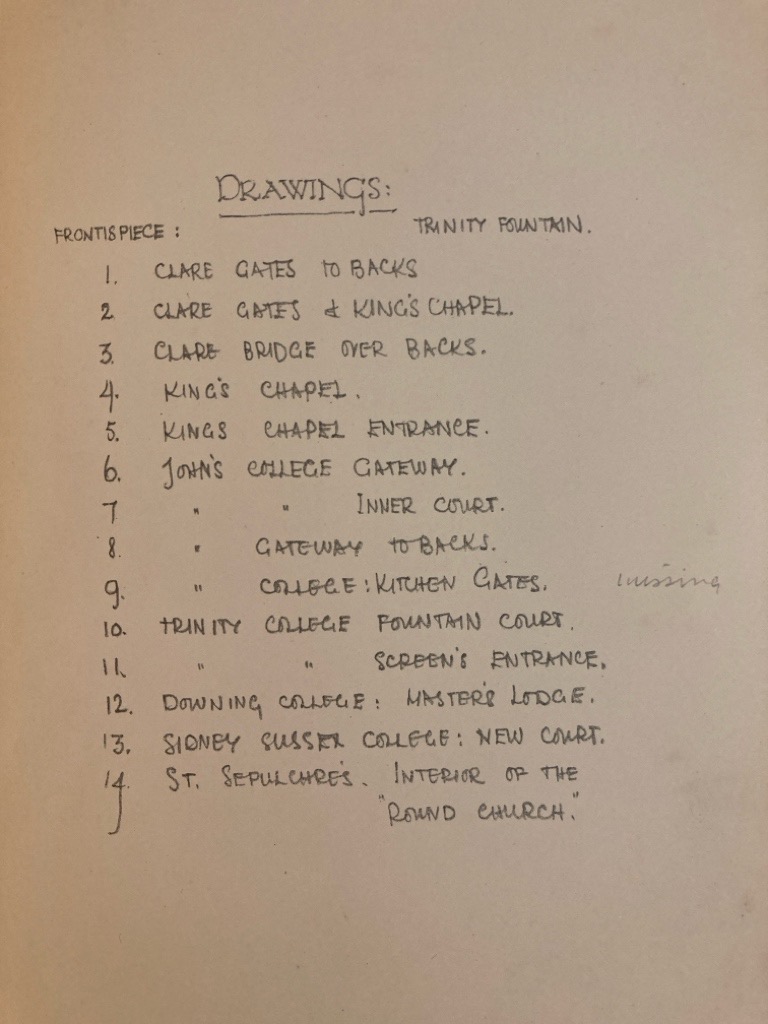 DRAWINGS:
FRONTISPIECE : TRINITY FOUNTAIN.
1. CLARE GATES TO BACKS
2 CLARE GATES & KING'S CHAPEL.
3. CLARE BRIDGE OVER BACKS.
4. KING'S CHAPEL.
5. KINGS CHAPEL ENTRANCE.
6. JOHN'S COLLEGE GATEWAY.
7 " " INNER COURT.
8. " GATEWAY TO BACKS.
9. " COLLEGE : KITCHEN GATES. missing
10. TRINITY COLLEGE FOUNTAIN COURT.
11. " " SCREEN'S ENTRANCE.
12. DOWNING COLLEGE : MASTER'S LODGE.
13. SIDNEY SUSSEX COLLEGE : NEW COURT.
14. ST. SEPULCHRE'S. INTERIOR OF THE
"ROUND CHURCH."